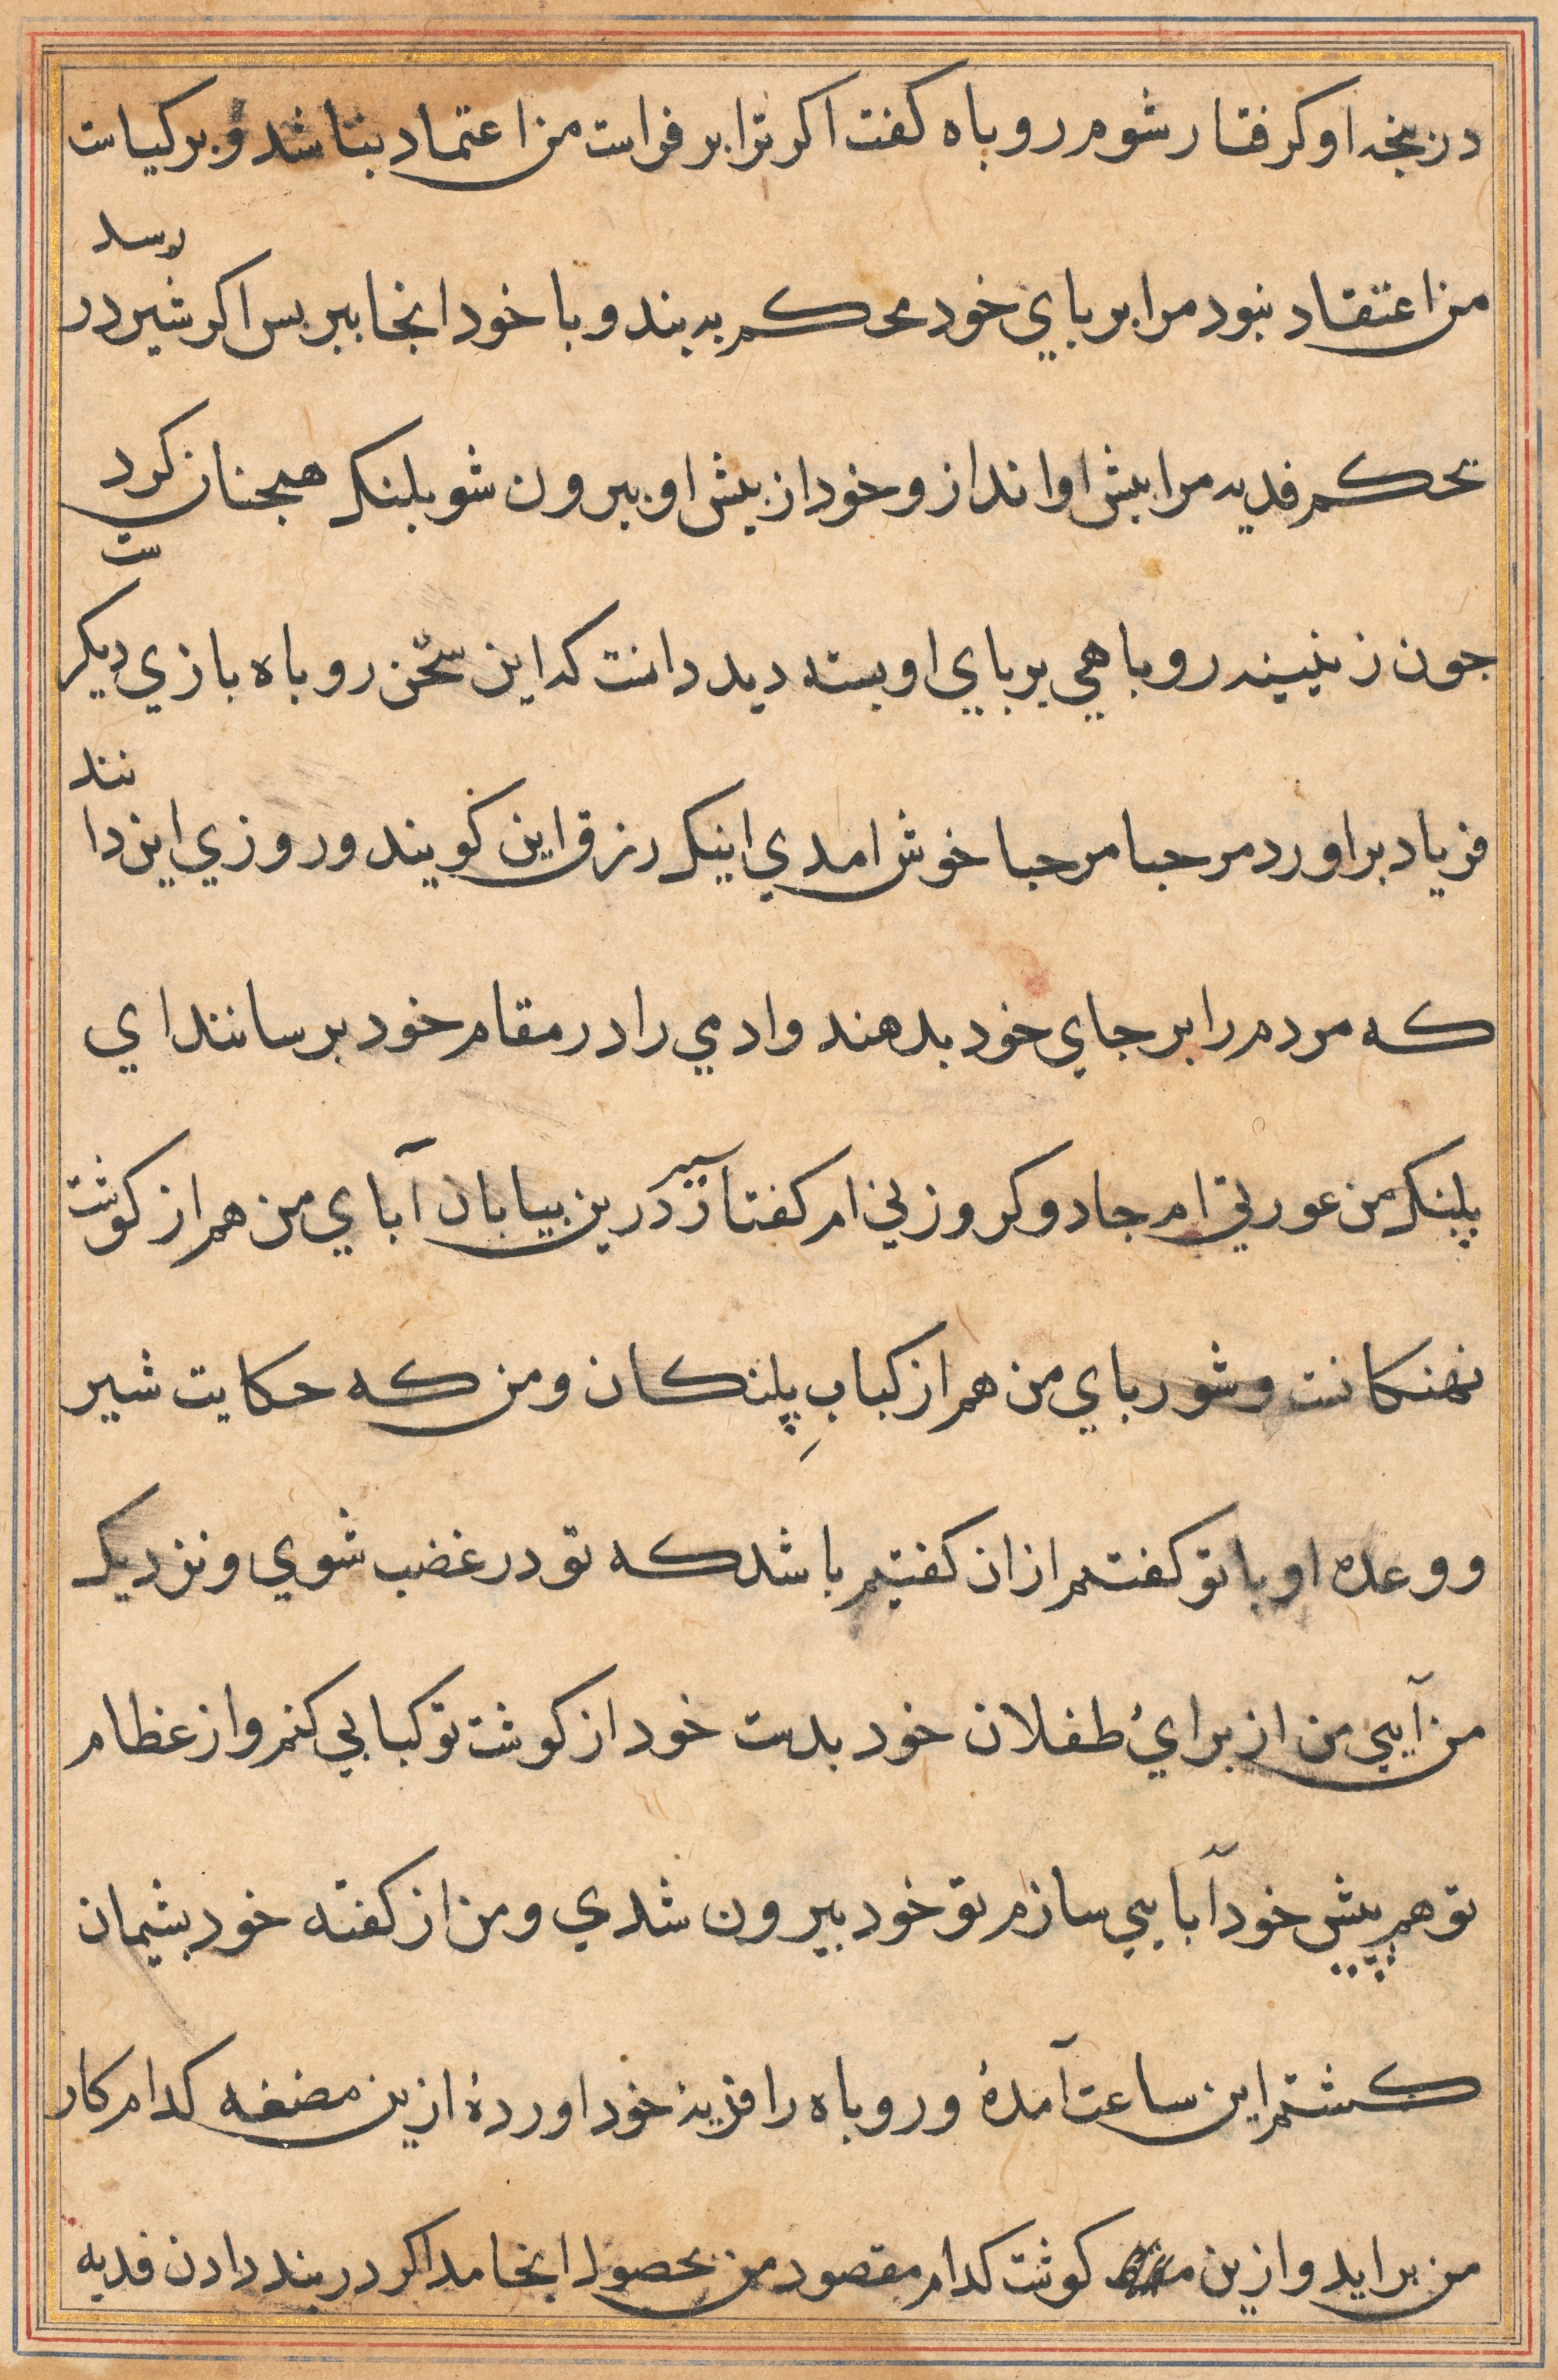 در پنجه او كرفتار شوم روباه كفت اكر ترا بر فراست من اعتماد بتاشد و بر كياست
من اعتقاد نبود مرا بر باي خود محكم به بند و با خود انجا ببر بس اكر شير در رسد
بحكم فديه مرا بيش او انداز و خود از بيش او بيرون شو بلنك همجنان كرد
جون زن نيند روباهي بر باي او بسته ديد دانست كه اين سخن روباه بازي ديكر ست
فرياد براورد مرحبا مرحبا خوش امدي اينك رزق اين كويند و روزي اين دا نند
كه مردم را بر جاي خود بدهند وادمي را در مقام خود برسانند اي
پلنك من عورتي ام جادوكر و زني ام كفتار سير درين بيابان آباي من هم از كوشت
نهنكانست و شورباي من هم از كبابِ پلنكان و من كه حكايت شير
و وعده او با تو كفتم از ان كفتيم باشد كه تو در غضب شوي و نزديك
من آيي من از برائ طفلان خود بدست خود از كوشت تو كبابي كنم و از عظام
تو هم پيش خود آبايي سازم تو خود بيرون شدي و من از كفته خود بشيمان
كشتم اين ساعت آمدهٔ و روباه را فزيهٔ خود اوردهٔ ازين مضغه كدام كار
من برايد و ازين كوشت كدام مقصود من بحصول انجامد اكر در بند دادن فديه